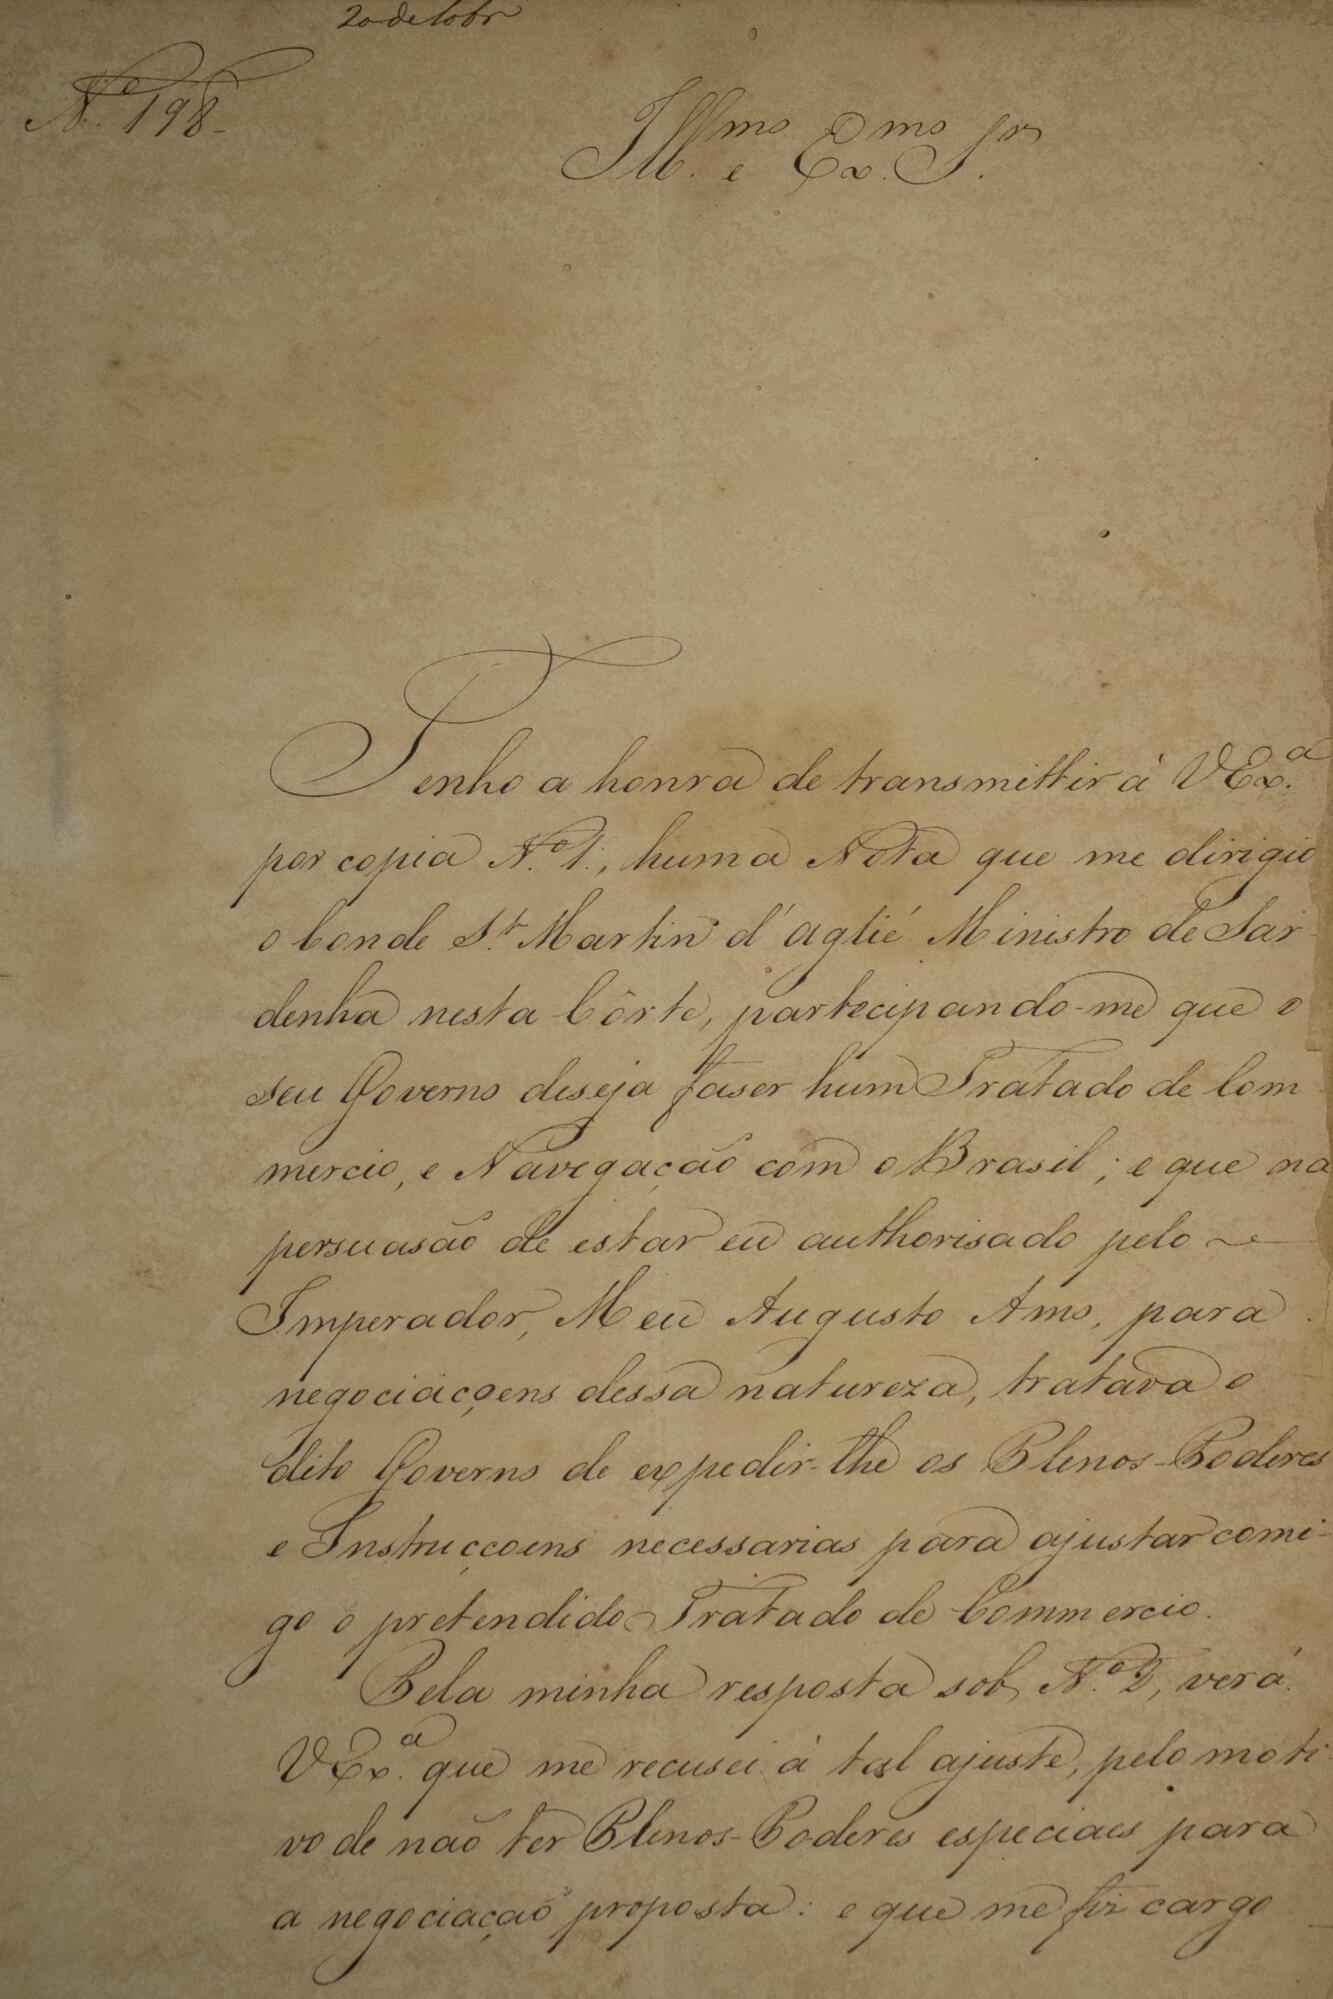 20 de 8obr
Nº 198
Illmo. e Exmo. Sr.
Tenho a honra de transmittir á VExa.
por copia Nº 1., huma Nota que me dirigio
o Conde St. Martin d'aglié Ministro de Sar-
denha nesta Côrte, partecipando-me que o
seu Governo deseja faser hum Tratado de Com
mercio, e Navegação com o Brasil; e que na
persuasão de estar eu authorisado pelo
Imperador, Meu Augusto Amo, para
negociaçoens dessa natureza, tratava o
dito Governo de expedir-lhe os Plenos-Poderes
e Instrucçoens necessarias para ajustar comi-
go o pretendido Tratado de Commercio.
Pela minha resposta sob Nº 2, verá
VExa. que me recusei á tal ajuste, pelo moti
vo de não ter Plenos-Poderes especiaes para
a negociação proposta: e que me fiz cargo